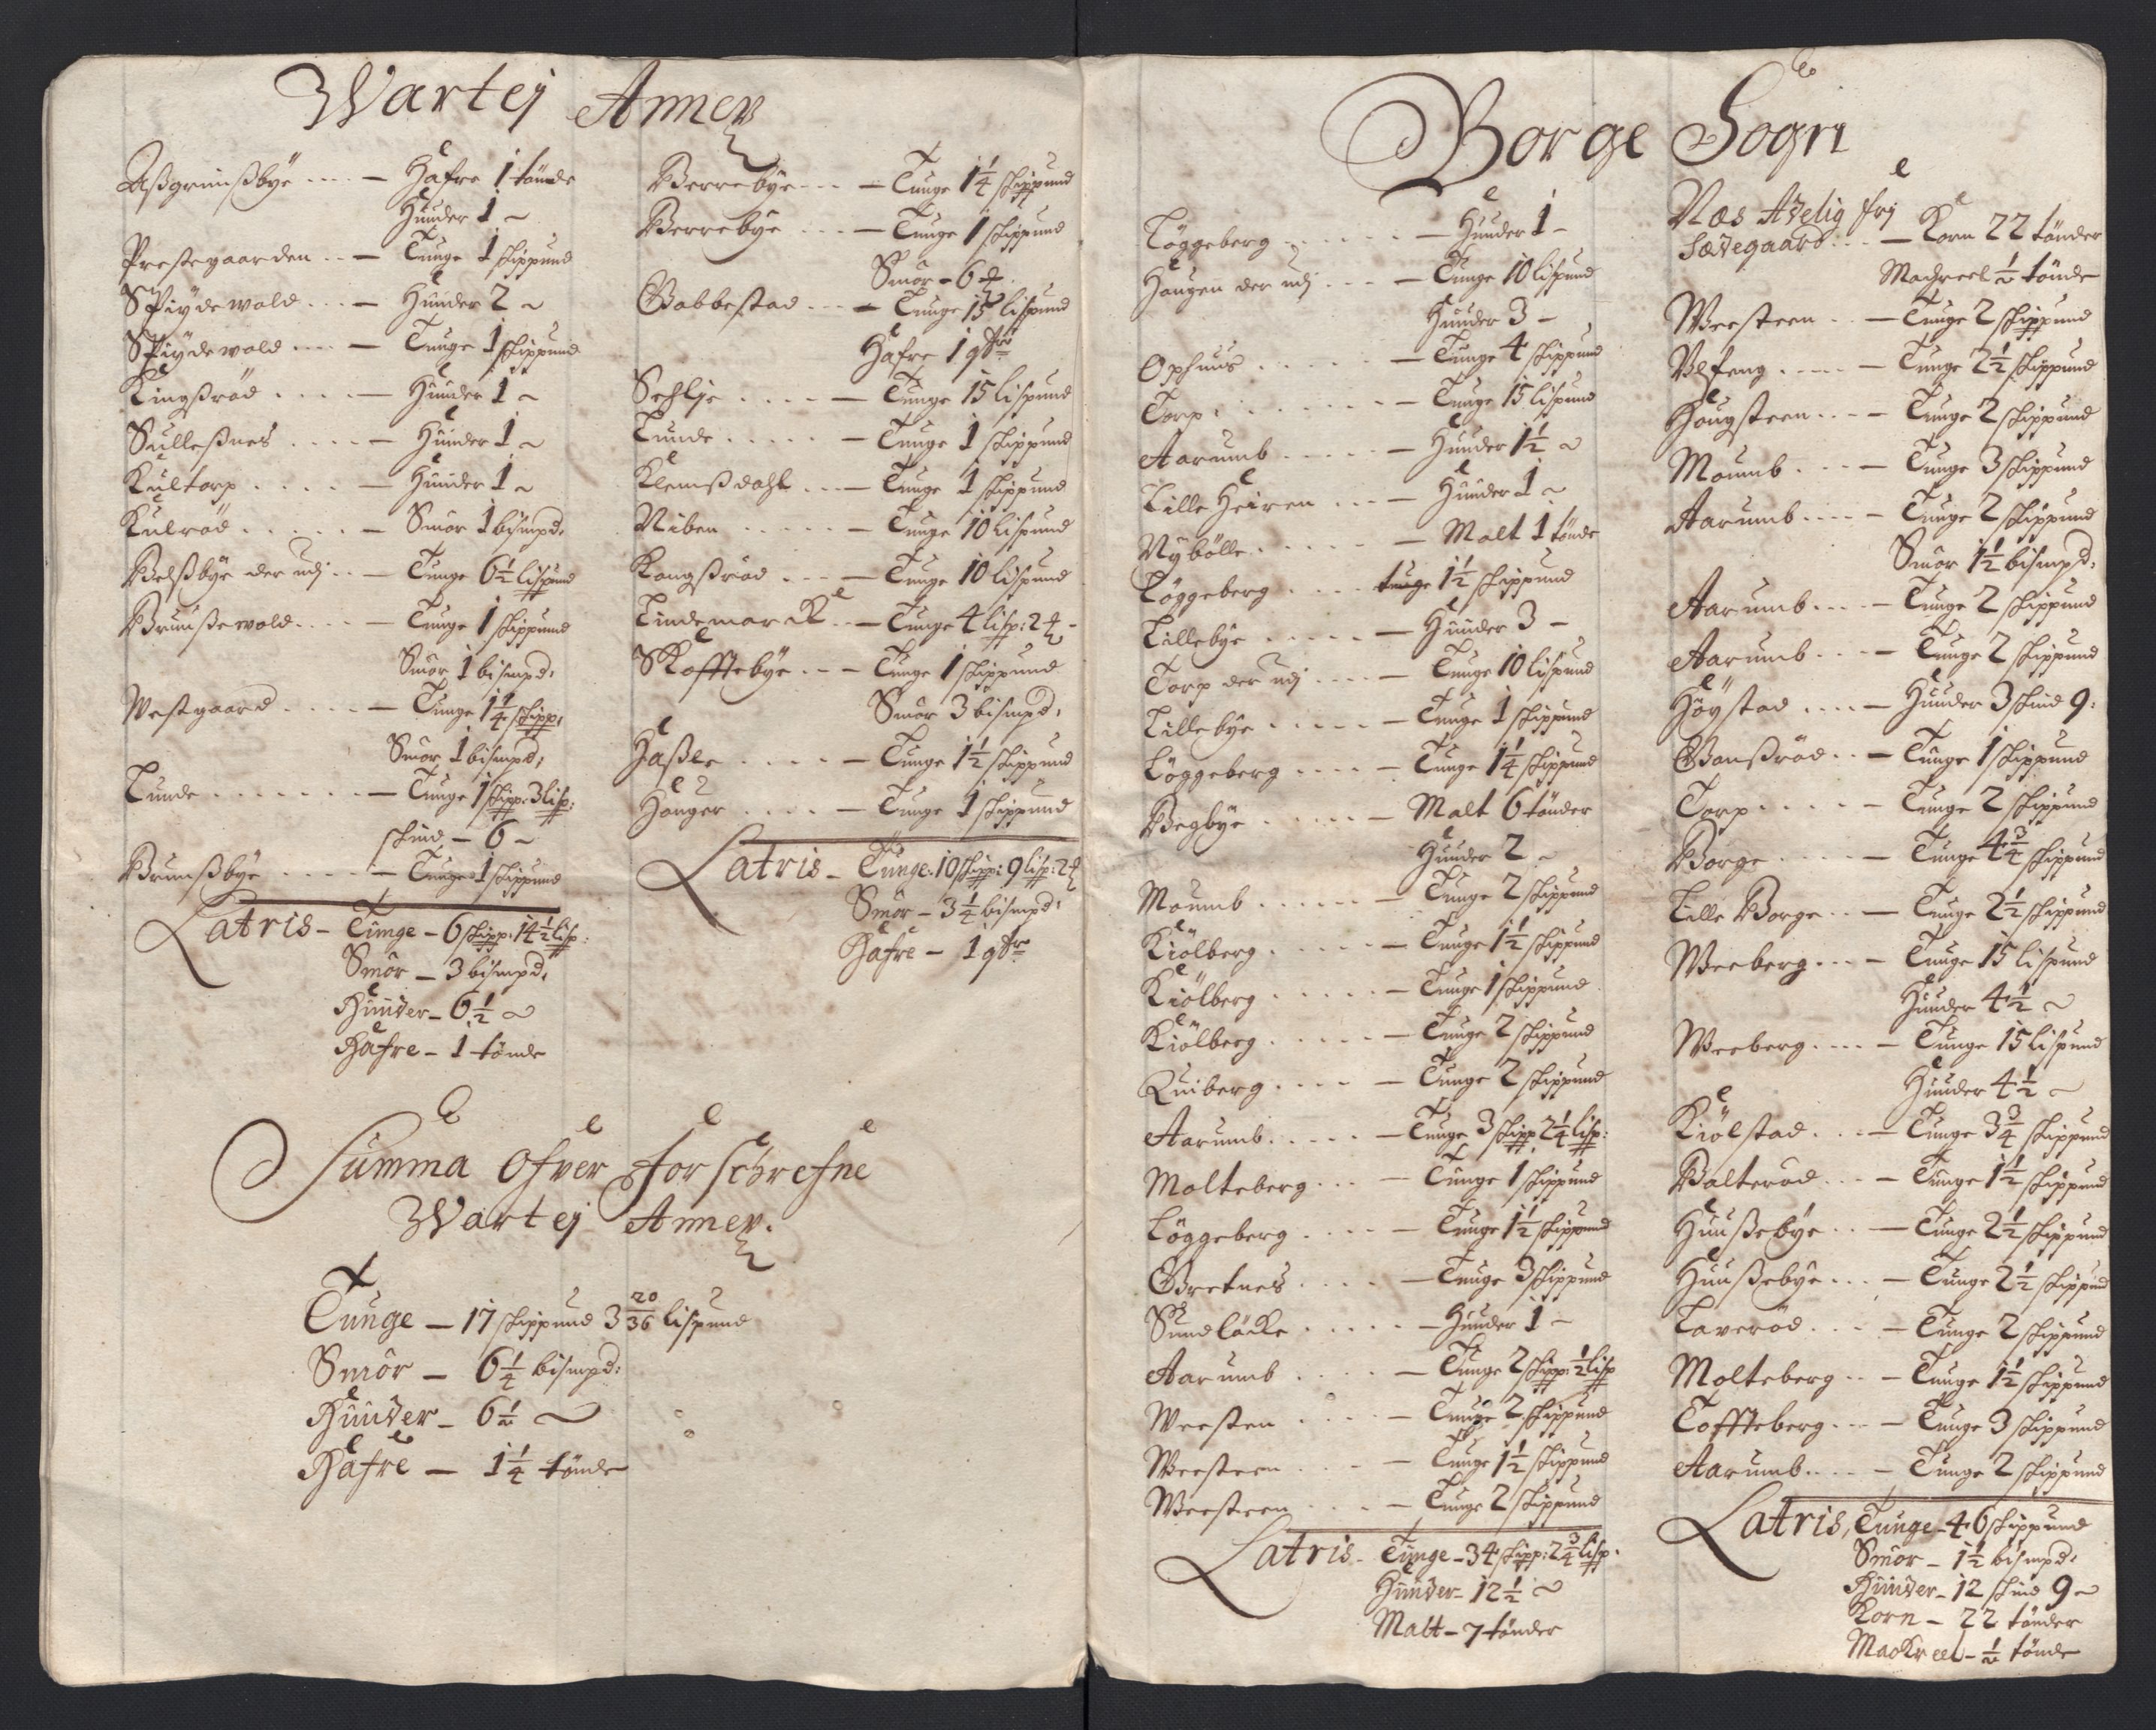 Wartej Annex
Aßgrimßbÿe .... – Hafre 1 tünde
Huuder 1 ~
Prestegaarden .. – Tunge 1 skippund
Spÿdewold ... – Huuder 2 ~
Spÿdewold .... – Tunge 1 skippund
Kingßröd .... – Huuder 1 ~
Sulleßnes .... – Huuder 1 ~
Kultorp .... – Huuder 1 ~
Kulröd ..... – Smör 1 bismpd:
Velßbÿe der udj .. – Tunge 6½ lispund
Bruußewold .... – Tunge 1 skippund
Smör 1 bismpd:
Westgaard .... – Tunge 1¼ skipp:
Smör 1 bismpd:
Lunde ....... – Tunge 1 skipp: 3 lisp:
skind – 6 ~
Brunßbÿe .... – Tunge 1 skippund
Latris – Tunge – 6 skipp: 14½ lisp:
Smör – 3 bismpd:
Huuder – 6½ ~
Hafre – 1 tönde
Berrebÿe ... – Tunge 1¼ skippund
Berrebÿe ... – Tunge 1 skippund
Smör – 6 ℔.
Gabbestad ... – Tunge 15 lispund
Hafre 1 qtr
Sehlje .... – Tunge 15 lispund
Lunde ..... – Tunge 1 skippund
Klemßdahl ... – Tunge 1 skippund
Niben ..... – Tunge 10 lispund
Kongßröd ... – Tunge 10 lispund
Lindemarck .. – Tunge 4 lisp: 2 ℔ –
Skofftebÿe .. – Tunge 1 skippund
Smör 3 bismpd:
Haßle .... – Tunge 1½ skippund
Hauger .... – Tunge 1 skippund
Latris – Tunge – 10 skipp: 9 lisp: 2 ℔
Smör – 3¼ bismpd:
Hafre – 1 qtr
Summa Ofver forschrefne
Wartej Annex.
Tunge – 17 skippund 3 20/36 lispund
Smör – 6¼ bismpd:
Huuder – 6½ ~
Hafre – 1¼ tönde
Borge Sogn
Löggeberg ...... – Huuder 1 –
Haugen der udj ... – Tunge 10 lispund
Huuder 3 –
Ophuus ..... – Tunge 4 skippund
Torp ....... – Tunge 15 lispund
Aarumb ..... – Huuder 1½ ~
Lille Heiren ... – Huuder 1 ~
Nÿbölle ..... – Malt 1 tönde
Löggeberg .... tunge 1½ skippund
Lillebÿe ..... – Huuder 3 –
Torp der udj .... – Tunge 10 lispund
Lillebÿe ..... – Tunge 1 skippund
Löggeberg .... – Tunge 1¼ skippund
Begbÿe ..... – Malt 6 tönder
Huuder 2 ~
Moumb ..... – Tunge 2 skippund
Kiölberg ..... – Tunge 1½ skippund
Kiölberg ..... – Tunge 1 skippund
Kiölberg ..... – Tunge 2 skippund
Quiberg .... – Tunge 2 skippund
Aarumb ..... – Tunge 3 skipp 2¼ lisp:
Molteberg ... – Tunge 1 skippund
Löggeberg .... – Tunge 1½ skippund
Gretnes .... – Tunge 3 skippund
Sundlöcke ..... – Huuder 1 ~
Aarumb .... – Tunge 2 skipp: ½ lisp
Weesten .... – Tunge 2 skippund
Weesteen .... – Tunge 1½ skippund
Weesteen .... – Tunge 2 skippund
Latris – Tunge – 34 skipp: 2¾ lisp:
Huuder – 12½ ~
Malt – 7 tönder
Næs Adelig frj
Sædegaard ... – Korn 22 tönder
Machreel ½ tönde
Weesteen .. – Tunge 2 skippund
Ulfeng .... – Tunge 2½ skippund
Haugsteen ... – Tunge 2 skippund
Moumb .... – Tunge 3 skippund
Aarumb .... – Tunge 2 skippund
Smör 1½ bismpd:
Aarumb .... – Tunge 2 skippund
Aarumb .... – Tunge 2 skippund
Höÿstad .... – Huuder 3 skind 9:
Gonßröd .. – Tunge 1 skippund
Torp ..... – Tunge 2 skippund
Borge .... – Tunge 4¾ skippund
Lille Borge .. – Tunge 2½ skippund
Weeberg ... – Tunge 15 lispund
Huuder 4½ ~
Weeberg .... – Tunge 15 lispund
Huuder 4½ ~
Kiölstad ... – Tunge 3¾ skippund
Balteröd ... – Tunge 1½ skippund
Huußebÿe .. – Tunge 2½ skippund
Huußebÿe ... – Tunge 2½ skippund
Laveröd .... – Tunge 2 skippund
Molteberg .. – Tunge 1½ skippund
Toffteberg ... – Tunge 3 skippund
Aarumb .... – Tunge 2 skippund
Latris, Tunge – 46 skippund
Smör – 1½ bismpd:
Huuder – 12 skind 9 ~
Korn – 22 tönder
Mackreel – ½ tönde